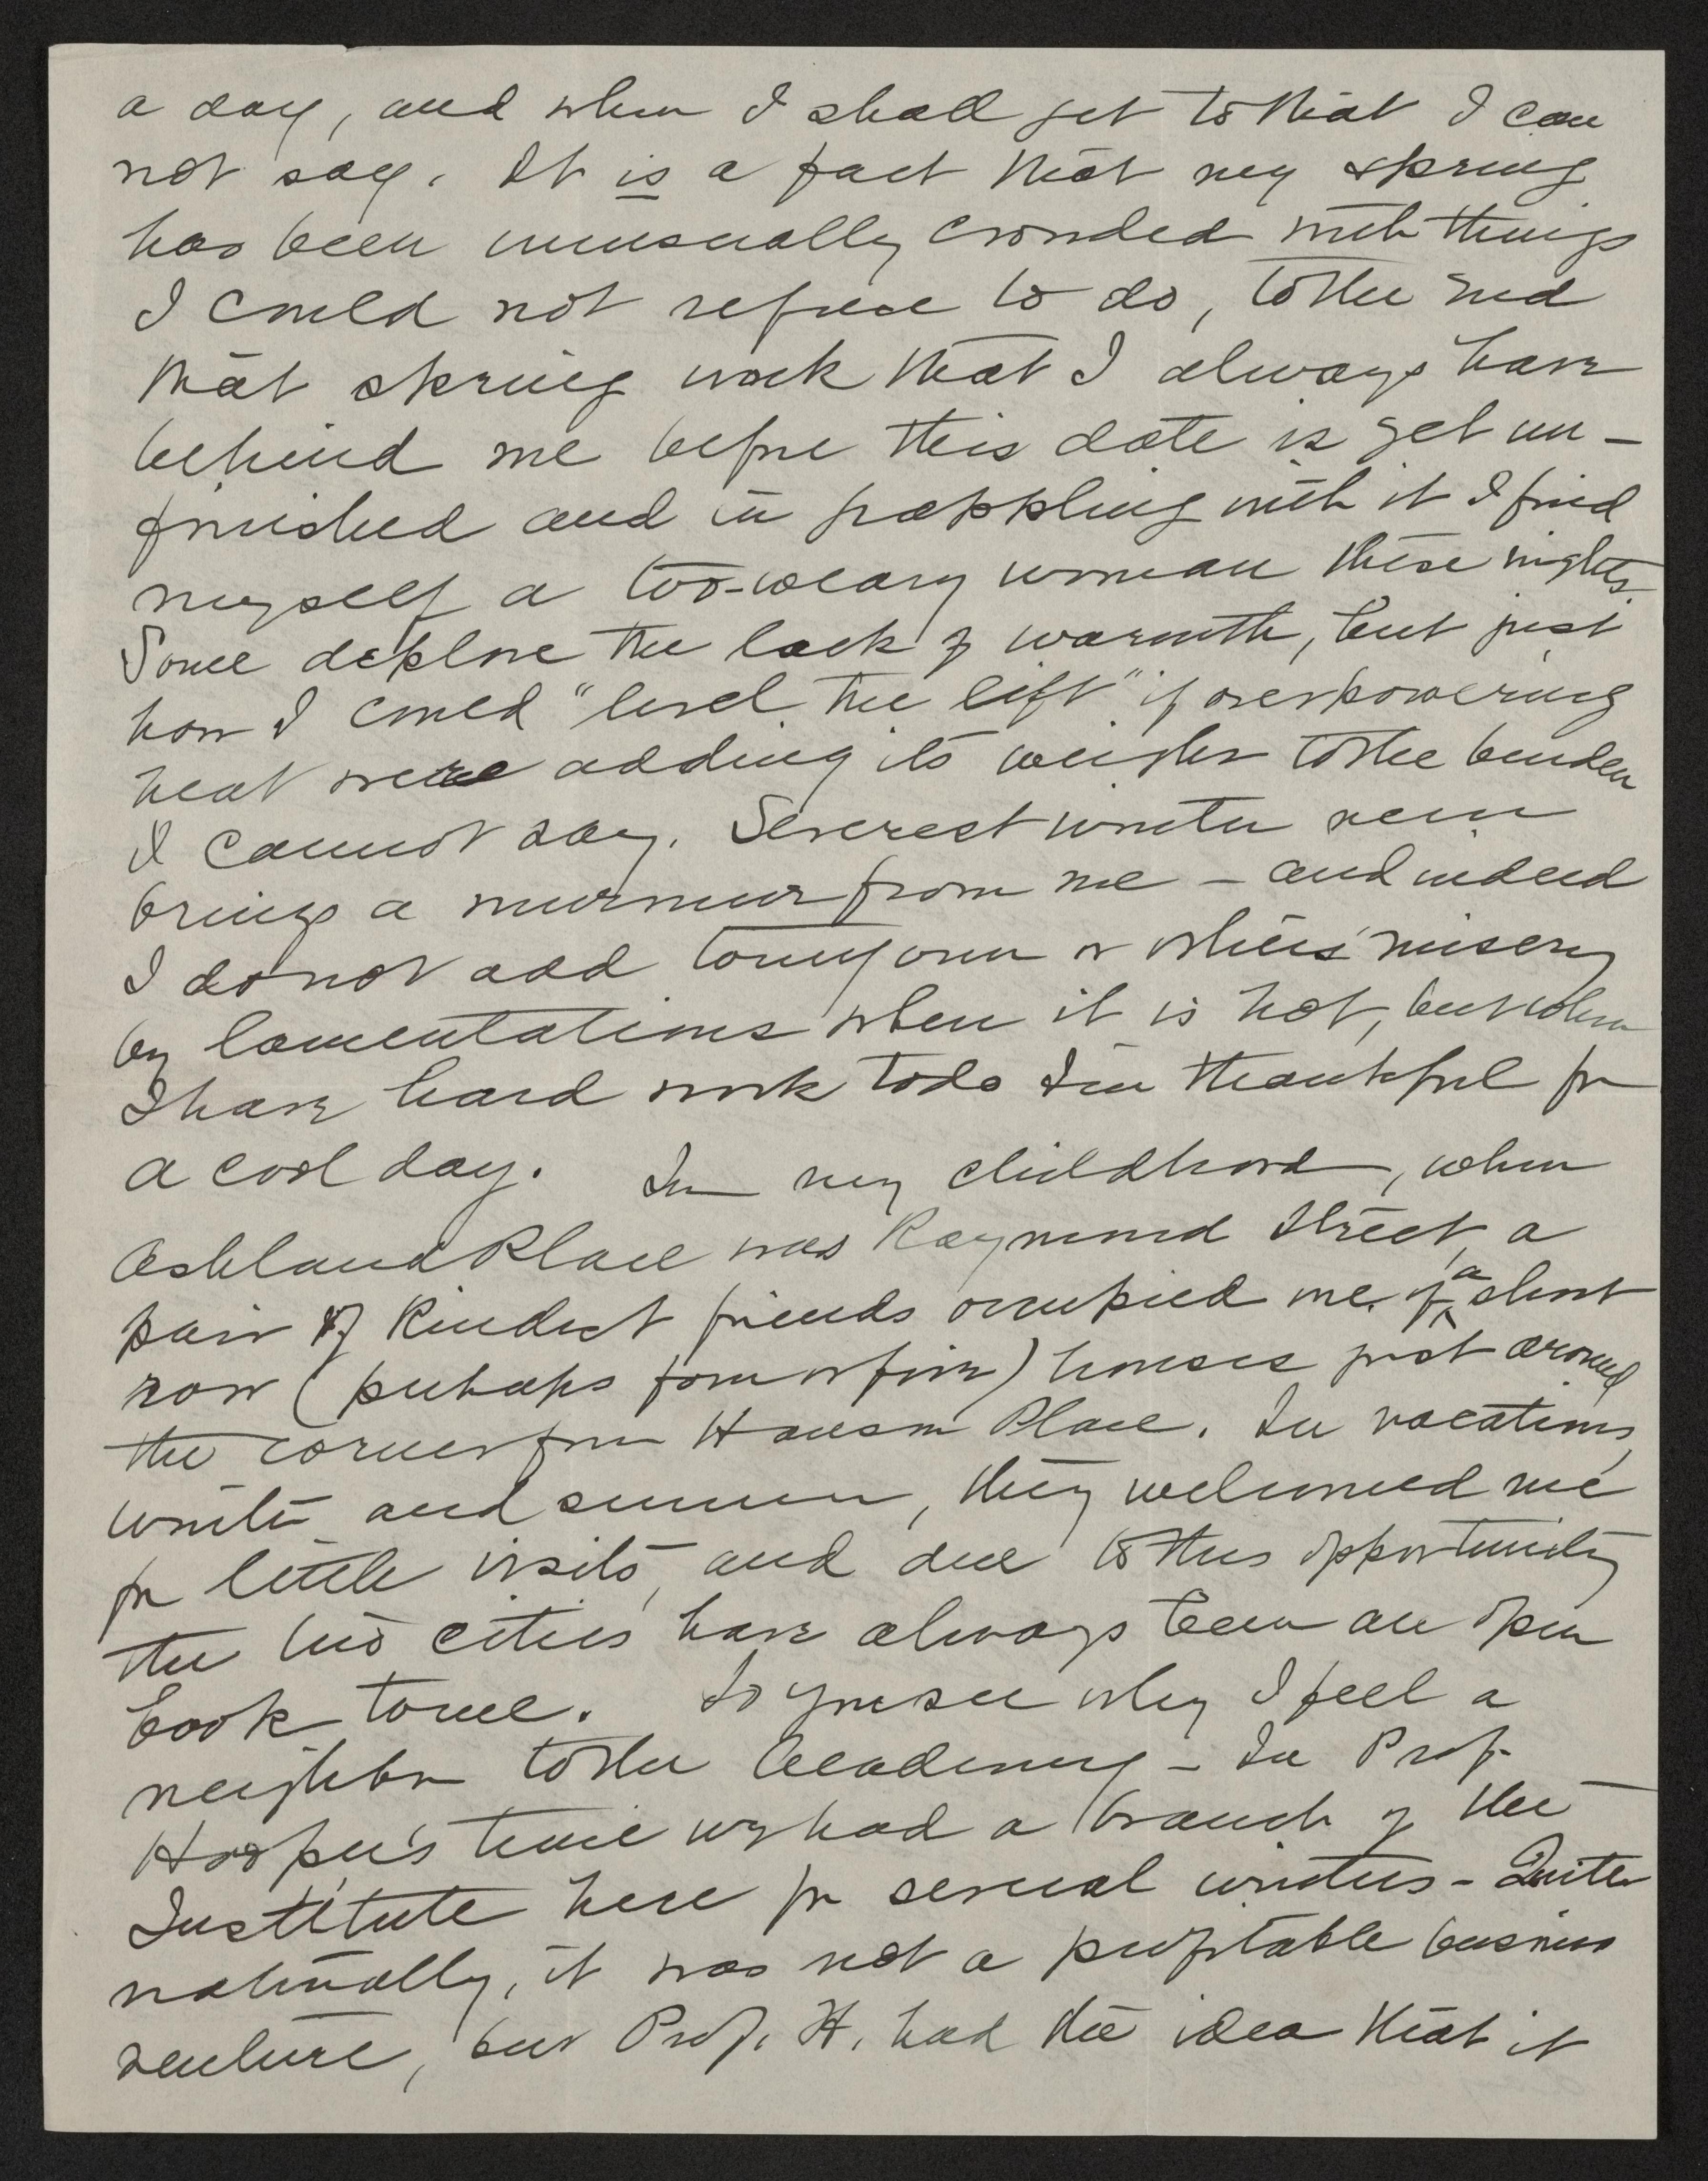 a day, and when I shall get to that I can
not say. It is a fact that my spring
has been unusually crowded with things
I could not refuse to do, to the end
that spring work that I always have
behind me before this date is yet un-
finished and in grappling with it I find
myself a too-weary woman these nights.
Some deplore the lack of warmth, but just
how I could "level the lift" if overpowering
heat were adding its weight to the burden
I cannot say. Severest winter never
brings a murmur from me - and indeed
I do not add to my own or others' misery
by lamentations when it is hot, but when
I have hard work to do I'm thankful for
a cool day. In my childhood, when
Ashland Place was Raymond Street, a
pair of kindest friends occupied one of a short
row (perhaps four or five) houses just around
the corner from Hanson Place. In vacations,
winter and summer, they welcomed me
for little visits, and due to this opportunity
the two cities have always been an open
book to me. So you see why I feel a
neighbor to the Academy - In Prof.
Hooper's time we had a branch of the
Institute here for several winters - Quite
naturally, it was not a profitable business
venture, but Prof. H. had the idea that it